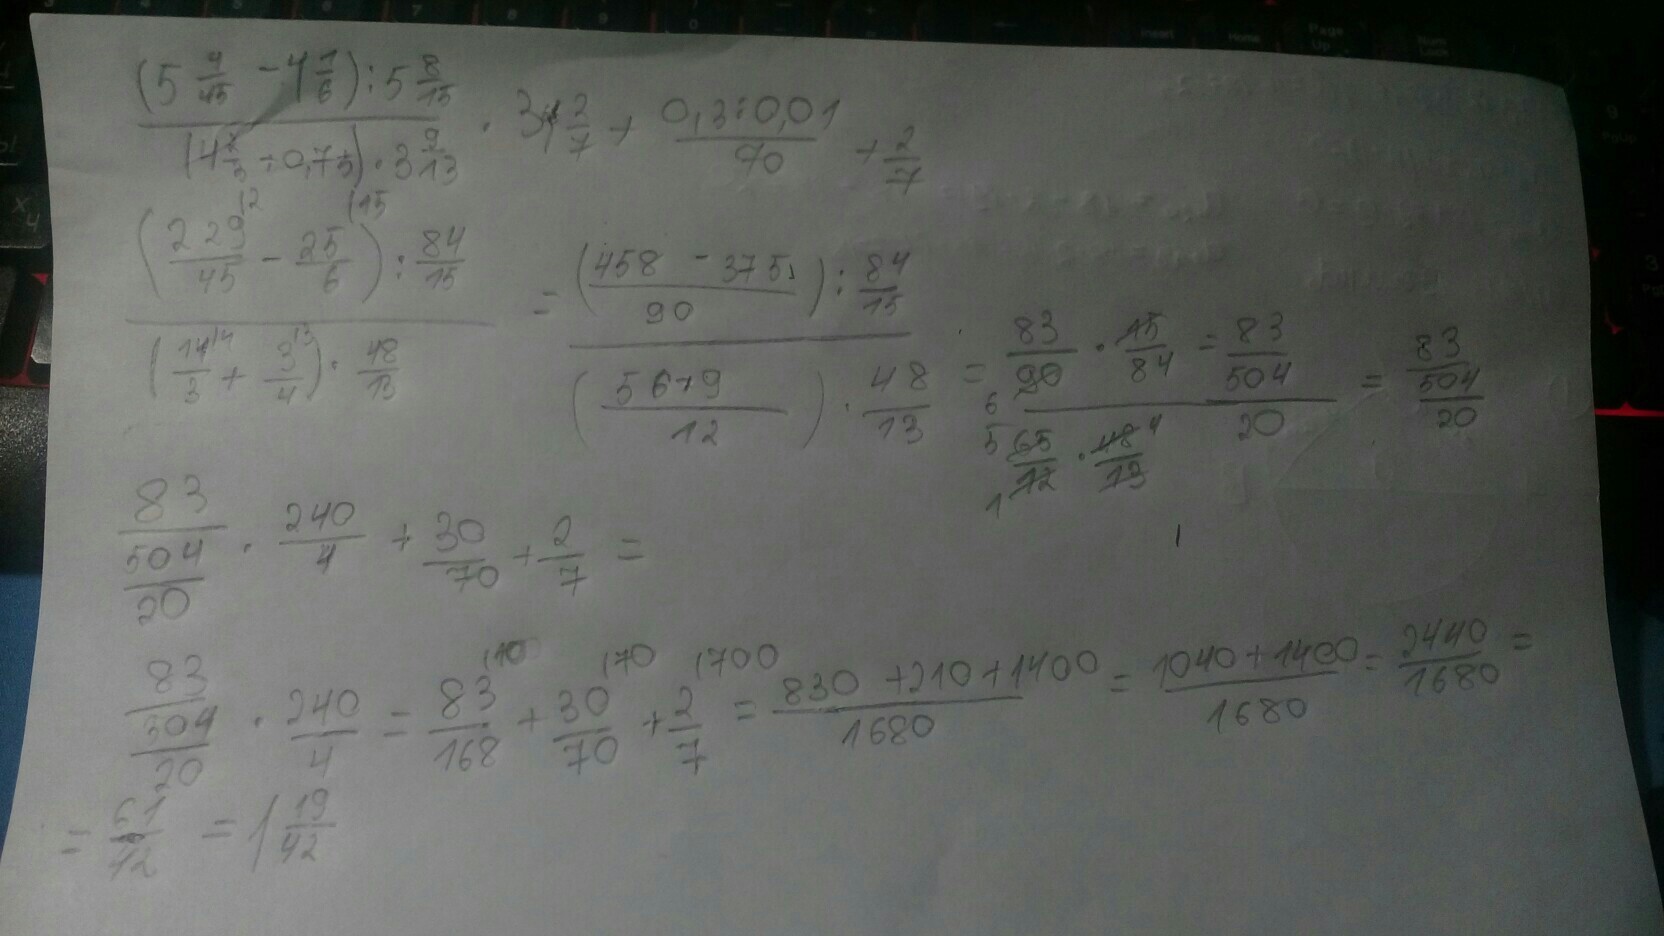 (5 4/45 - 4 1/6) : 5 8/15 / (4 2/3 + 0,75) · 3 9/13 · 34 2/7 + 0,3:0,01 / 70 + 2/7
(229/45 - 25/6) : 84/15 / (14/3 + 3/4) · 48/13 = (458 - 375 / 90) : 84/15 / (56+9 / 12) · 48/13 = 83/90 · 15/84 = 83/504 / 65/12 · 48/13 20 = 83/504/20
83/504/20 · 240/4 + 30/70 + 2/7 =
83/504/20 · 240/4 = 83/168 + 30/70 + 2/7 = 830 + 210 + 1400 / 1680 = 1040 + 1400 / 1680 = 2440/1680 =
= 61/42 = 1 19/42